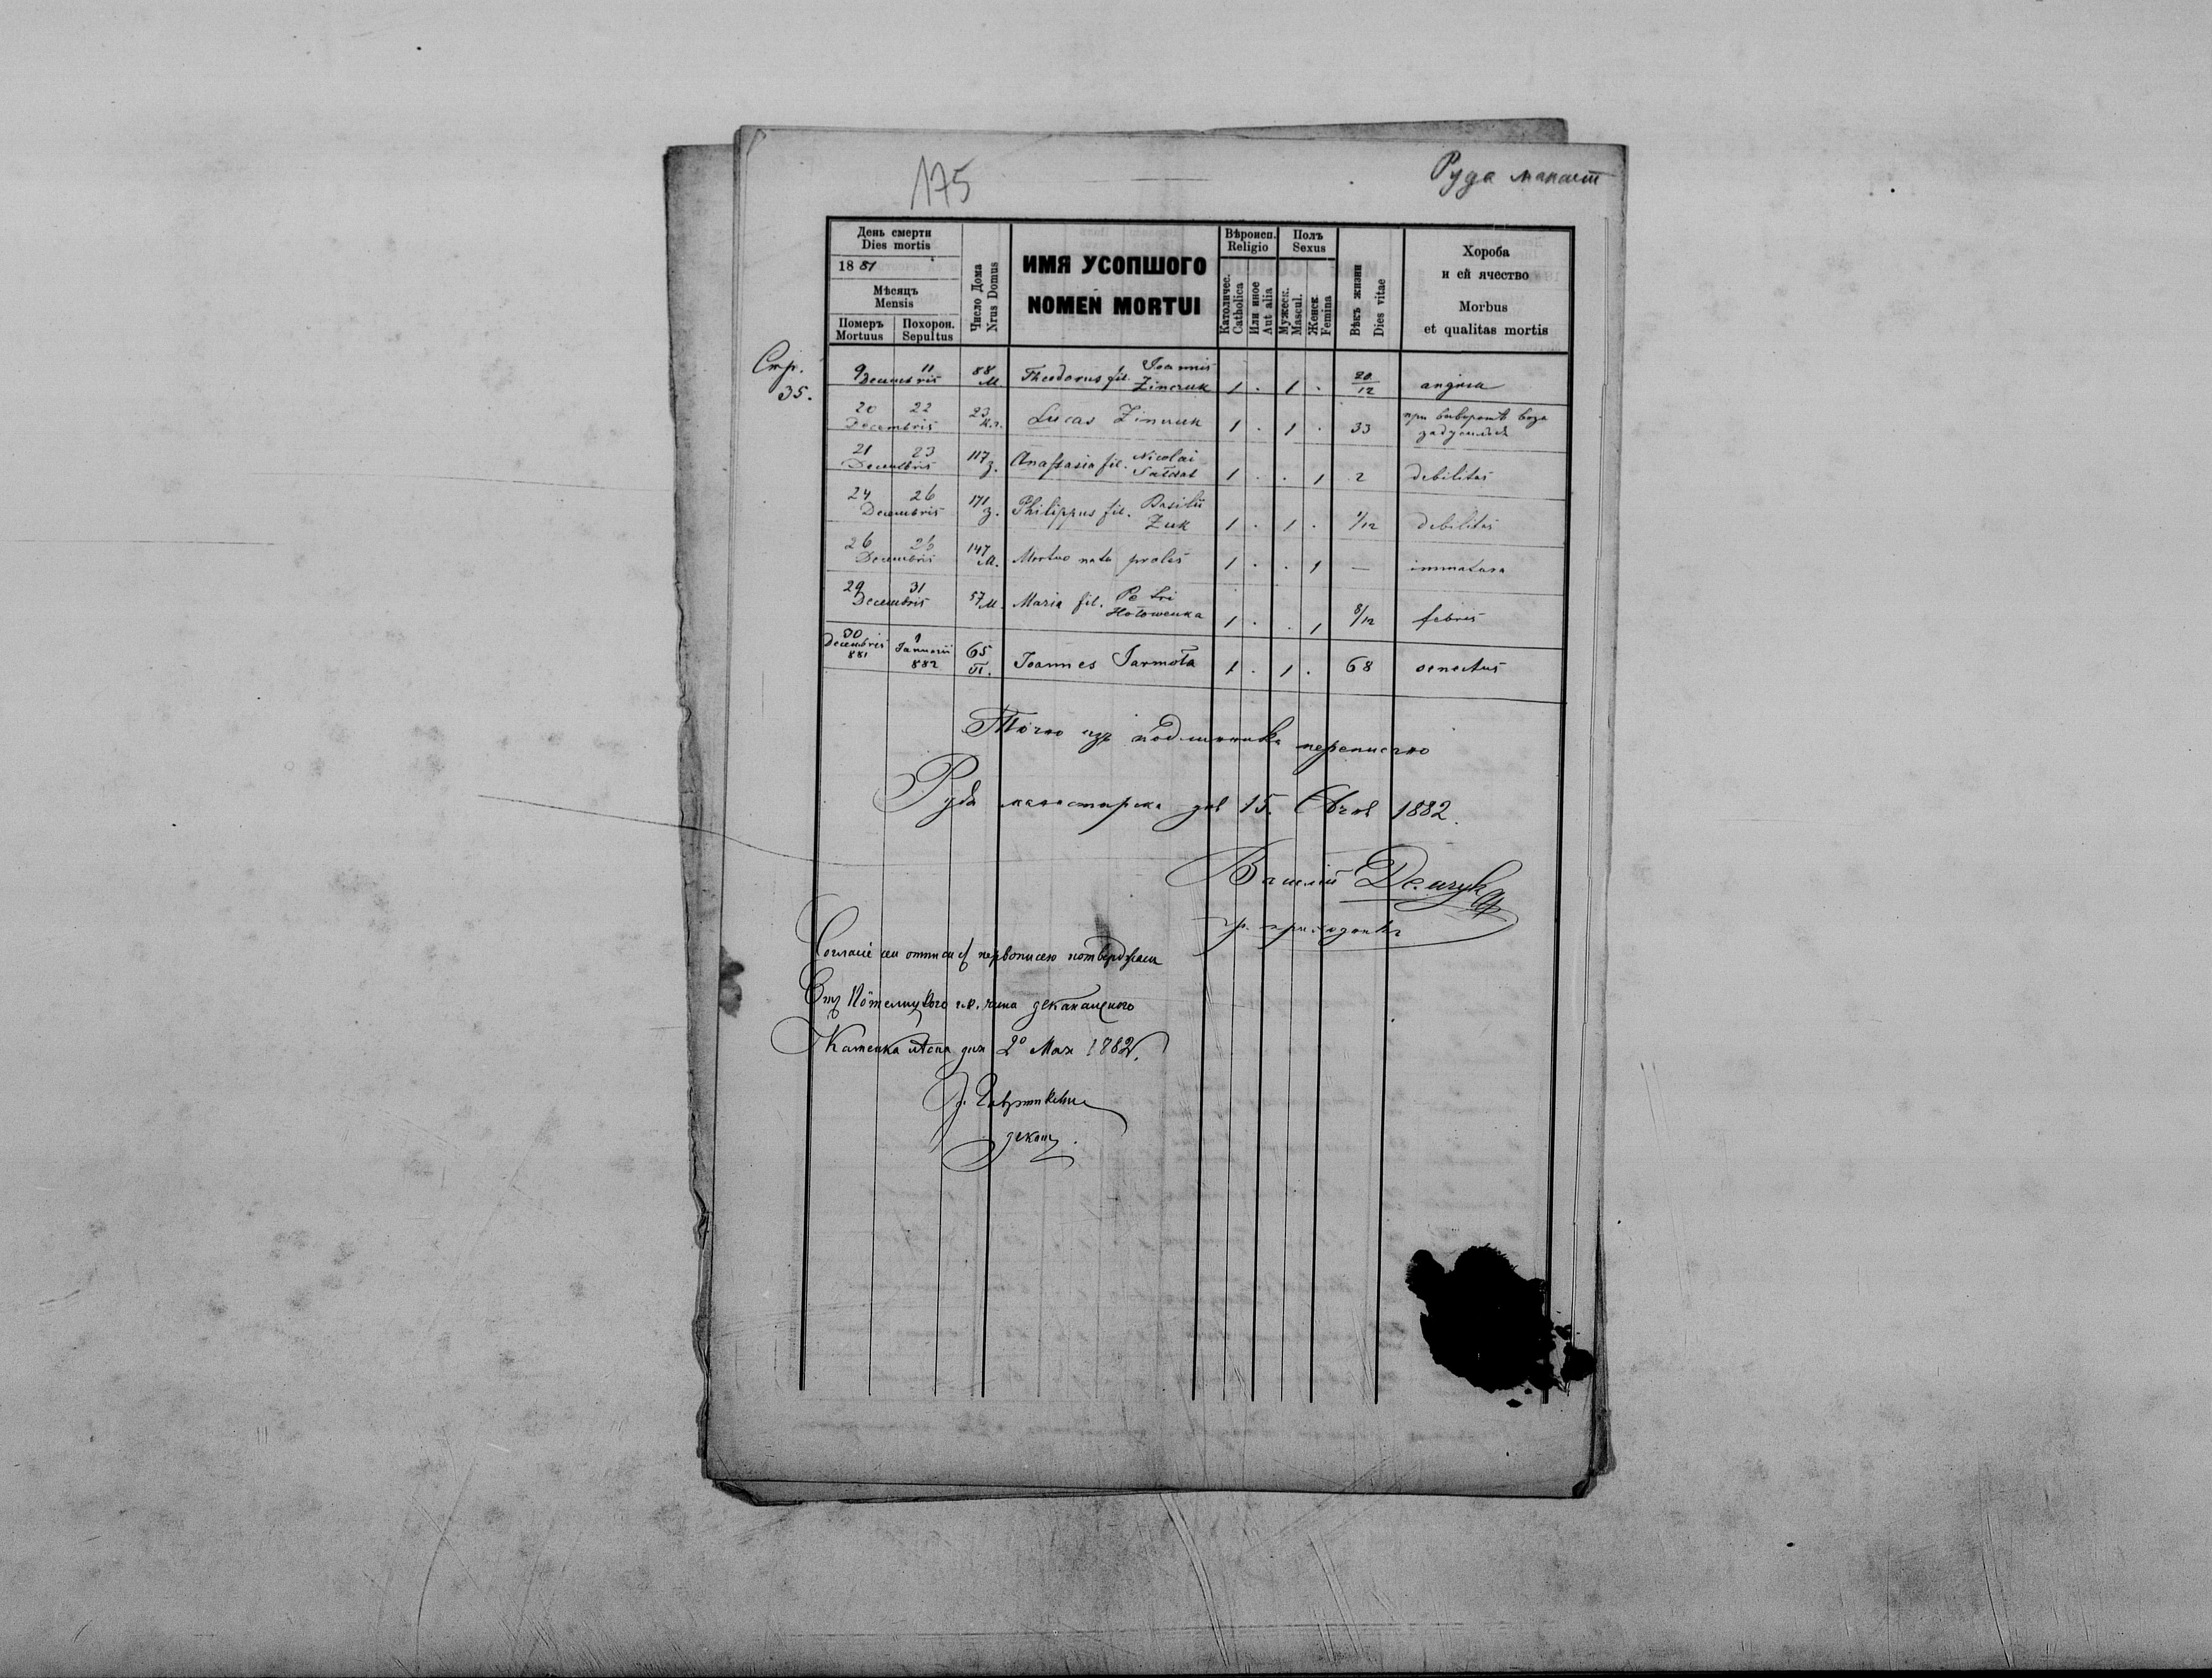 175
Руда манаст
День смерти
Dies mortis
1881
Мѣсяцъ
Mensis
Померъ
Mortuus
Похорон.
Sepultus
Число Дома
Nrus Domus
ИМЯ УСОПШОГО
NOMEN MORTUI
Вѣроисп.
Religio
Католичес.
Catholica
Или иное
Aut alia
Полъ
Sexus
Мужеск.
Mascul.
Женск.
Femina
Вѣкъ жизни
Dies vitae
Хороба
и ей ячество
Morbus
et qualitas mortis
Стр.
35.
9 11 Decembris 88 М. Theodorus fil. Joannis Zinczuk 1 . 1 . 20/12 angina
20 22 Decembris 23 Лucas Zinczuk 1 . 1 . 33 при воза
21 23 Decembris 117 З. Anastasia fil. Nicolai 1 . . 1 2 debilitas
24 26 Decembris 171 З. Philippus fil. Basilii Zuk 1 . 1 . 1/12 debilitas
26 26 Decembris 147 М. Mortuo nata proles 1 . . 1 — immatura
29 31 Decembris 57 М. Maria fil. Petri Hołowenka 1 . . 1 8/12 febris
30 Decembris 881 1 Januarii 882 65 Joannes Jarmoła 1 . 1 . 68 senectus
Точно изъ подлинника переписано
Руда манастирска дня 15. 1882.
Василій
гр. приходникъ
Согласіе сеи отписи съ первописею потверджаеся
Отъ гр. чина деканального
Каменка лѣсна дня 2º Мая 1882.
деканъ.